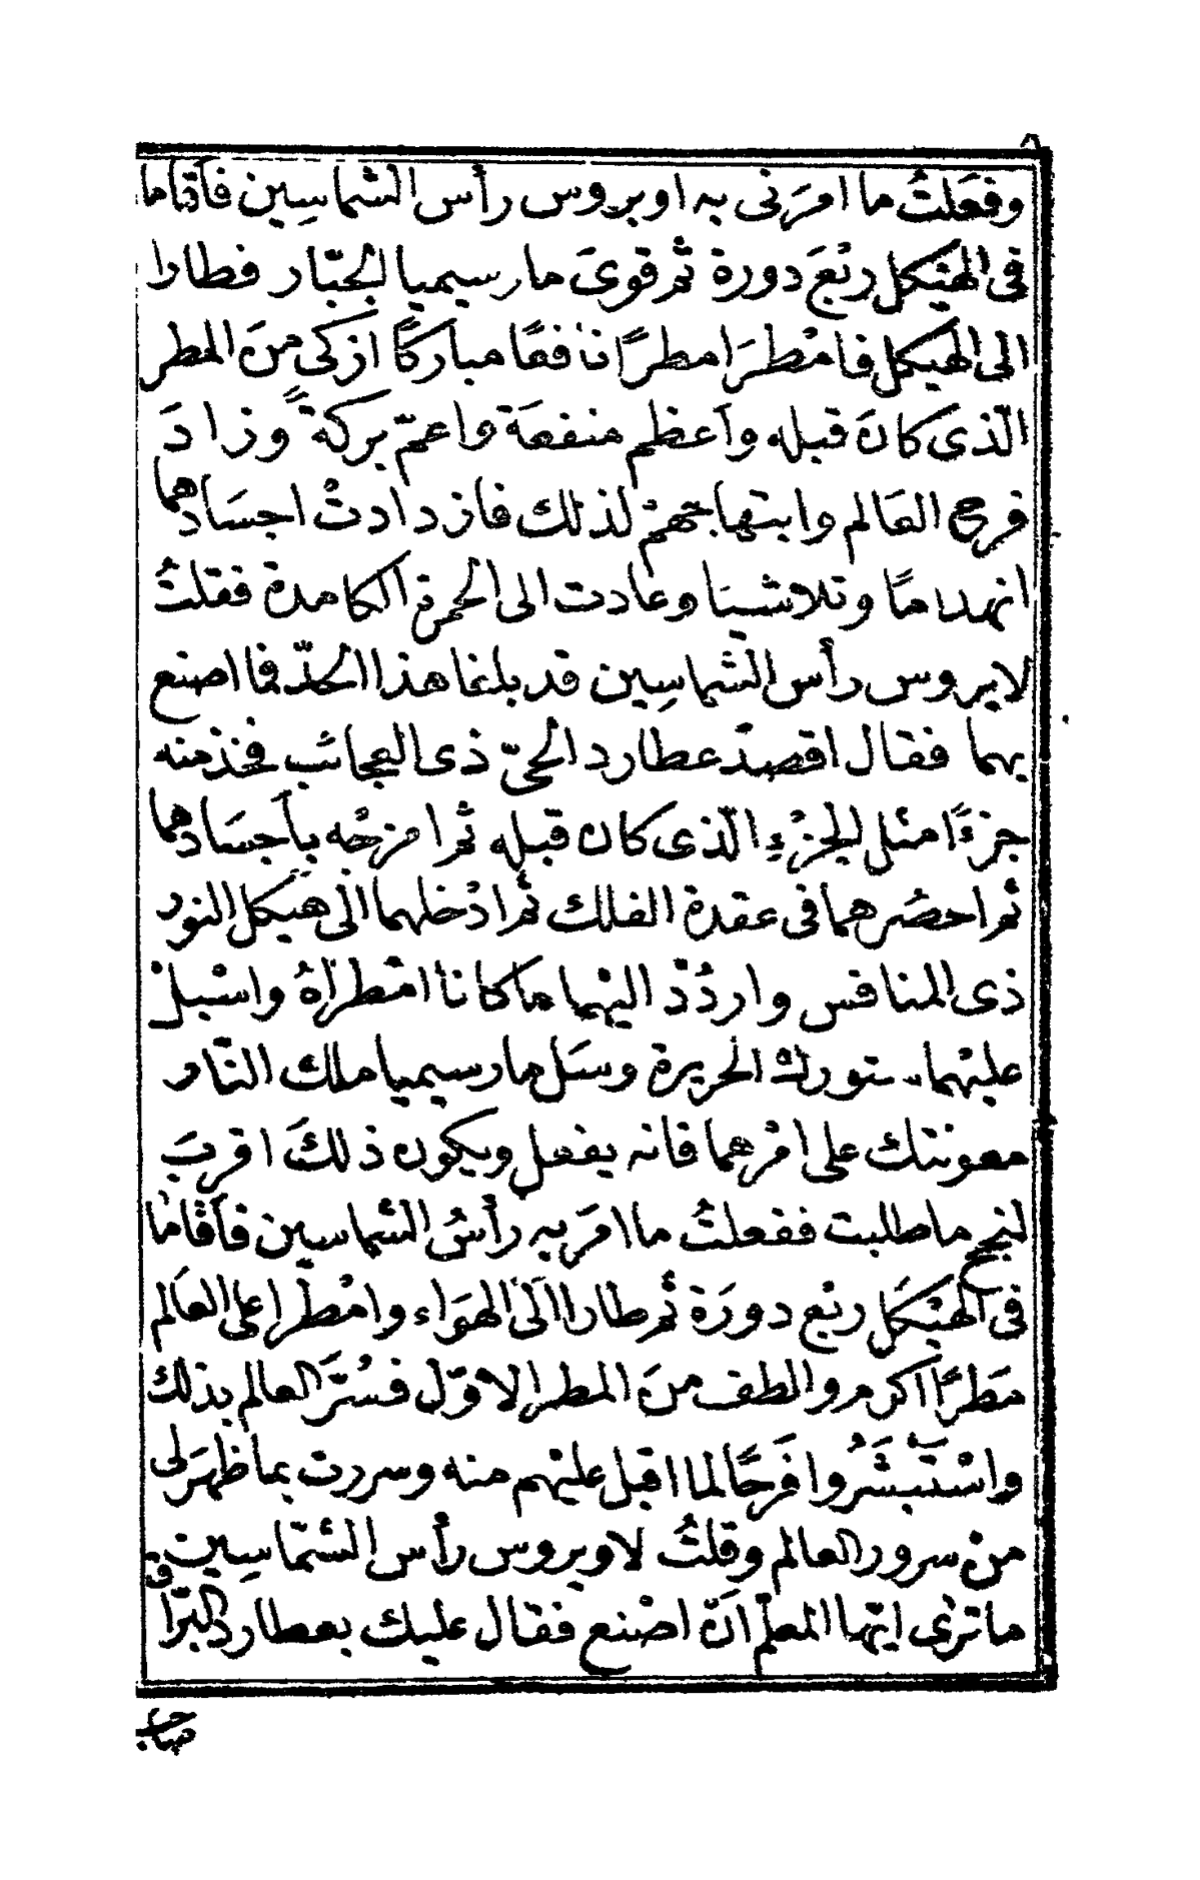 وفعَلتُ ما امرَنى به اوبروس رأس الشماسِين فأقاما
فى الهيْكل ربْعَ دورة ثم قوىَ مارسيميا الجبّار فطارا
الى الهيكل فامْطرَا مطرًا نافعًا مباركًا ازكى منَ المطر
الّذى كانَ قبله وأعظم منفعَة واعمّ بركةً وزادَ
فرح العَالم وابتهاجهمْ لذلك فازدادتْ اجسَادهما
انهداما وتلاشيا وعادت الى الحمرة الكامدة فقلتُ
لابروس رأس الشماسِين قد بلغا هذا الحدّ فما اصنع
بهما فقال اقصدْ عطارد الحىّ ذى العجائب فخذ منه
جزءًا مثل الجزْءِ الّذى كان قبله ثم امزجْه بأجسَادهما
ثم احصُرهما فى عقدة الفلك ثم ادْخلهما الى هيكل النور
ذى المنافس واردُدْ اليْهما ما كانا امْطراهُ واسْبلْ
عليْهما ستورك الحريرة وسَل مارسيميا ملك النّار
معونتك على امْرهما فانه يفعل ويكون ذلكَ اقربَ
لنجح ما طلبت ففعلتُ ما امَر به رأسُ الشماسين فأقاما
فى الهيْكل ربْع دورَة ثم طارا الى الهوَاء وامْطرا على العَالم
مَطرًا اكرم والطف منَ المطر الاوّل فسُرّ العالم بذلك
واسْتبْشَرُوا فَرحًا لما اقبل عليْهم منه وسررت بما ظهرَ لى
منْ سرور العالم وقلتُ لاوبروس رأس الشمّاسِين
ما ترى ايّها المعلّم انّ اصْنع فقال عليك بعطارد البرّاق
صاحب